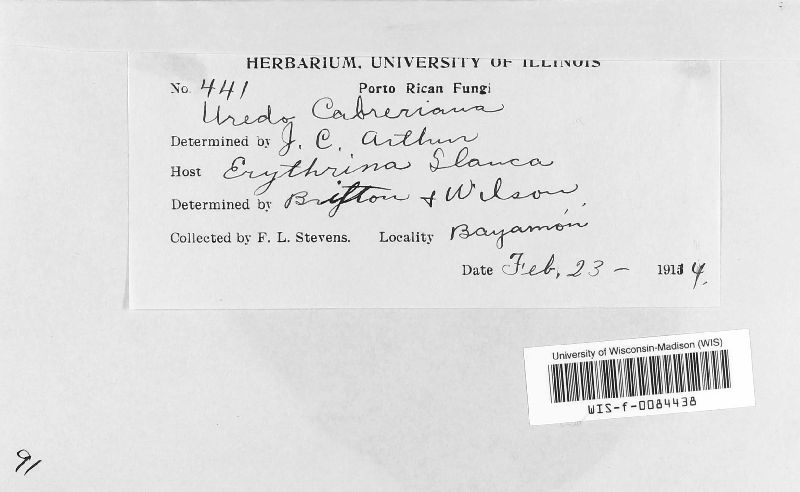 HERBARIUM, UNIVERSITY OF ILLINOIS
No. 441 Porto Rican Fungi
Uredo Cabreriana
Determined by J. C. Arthur
Host Erythrina Glauca
Determined by Britton & Wilson
Collected by F. L. Stevens. Locality Bayamón
Date Feb. 23 – 1914.
University of Wisconsin-Madison (WIS)
WIS-f-0084438
91